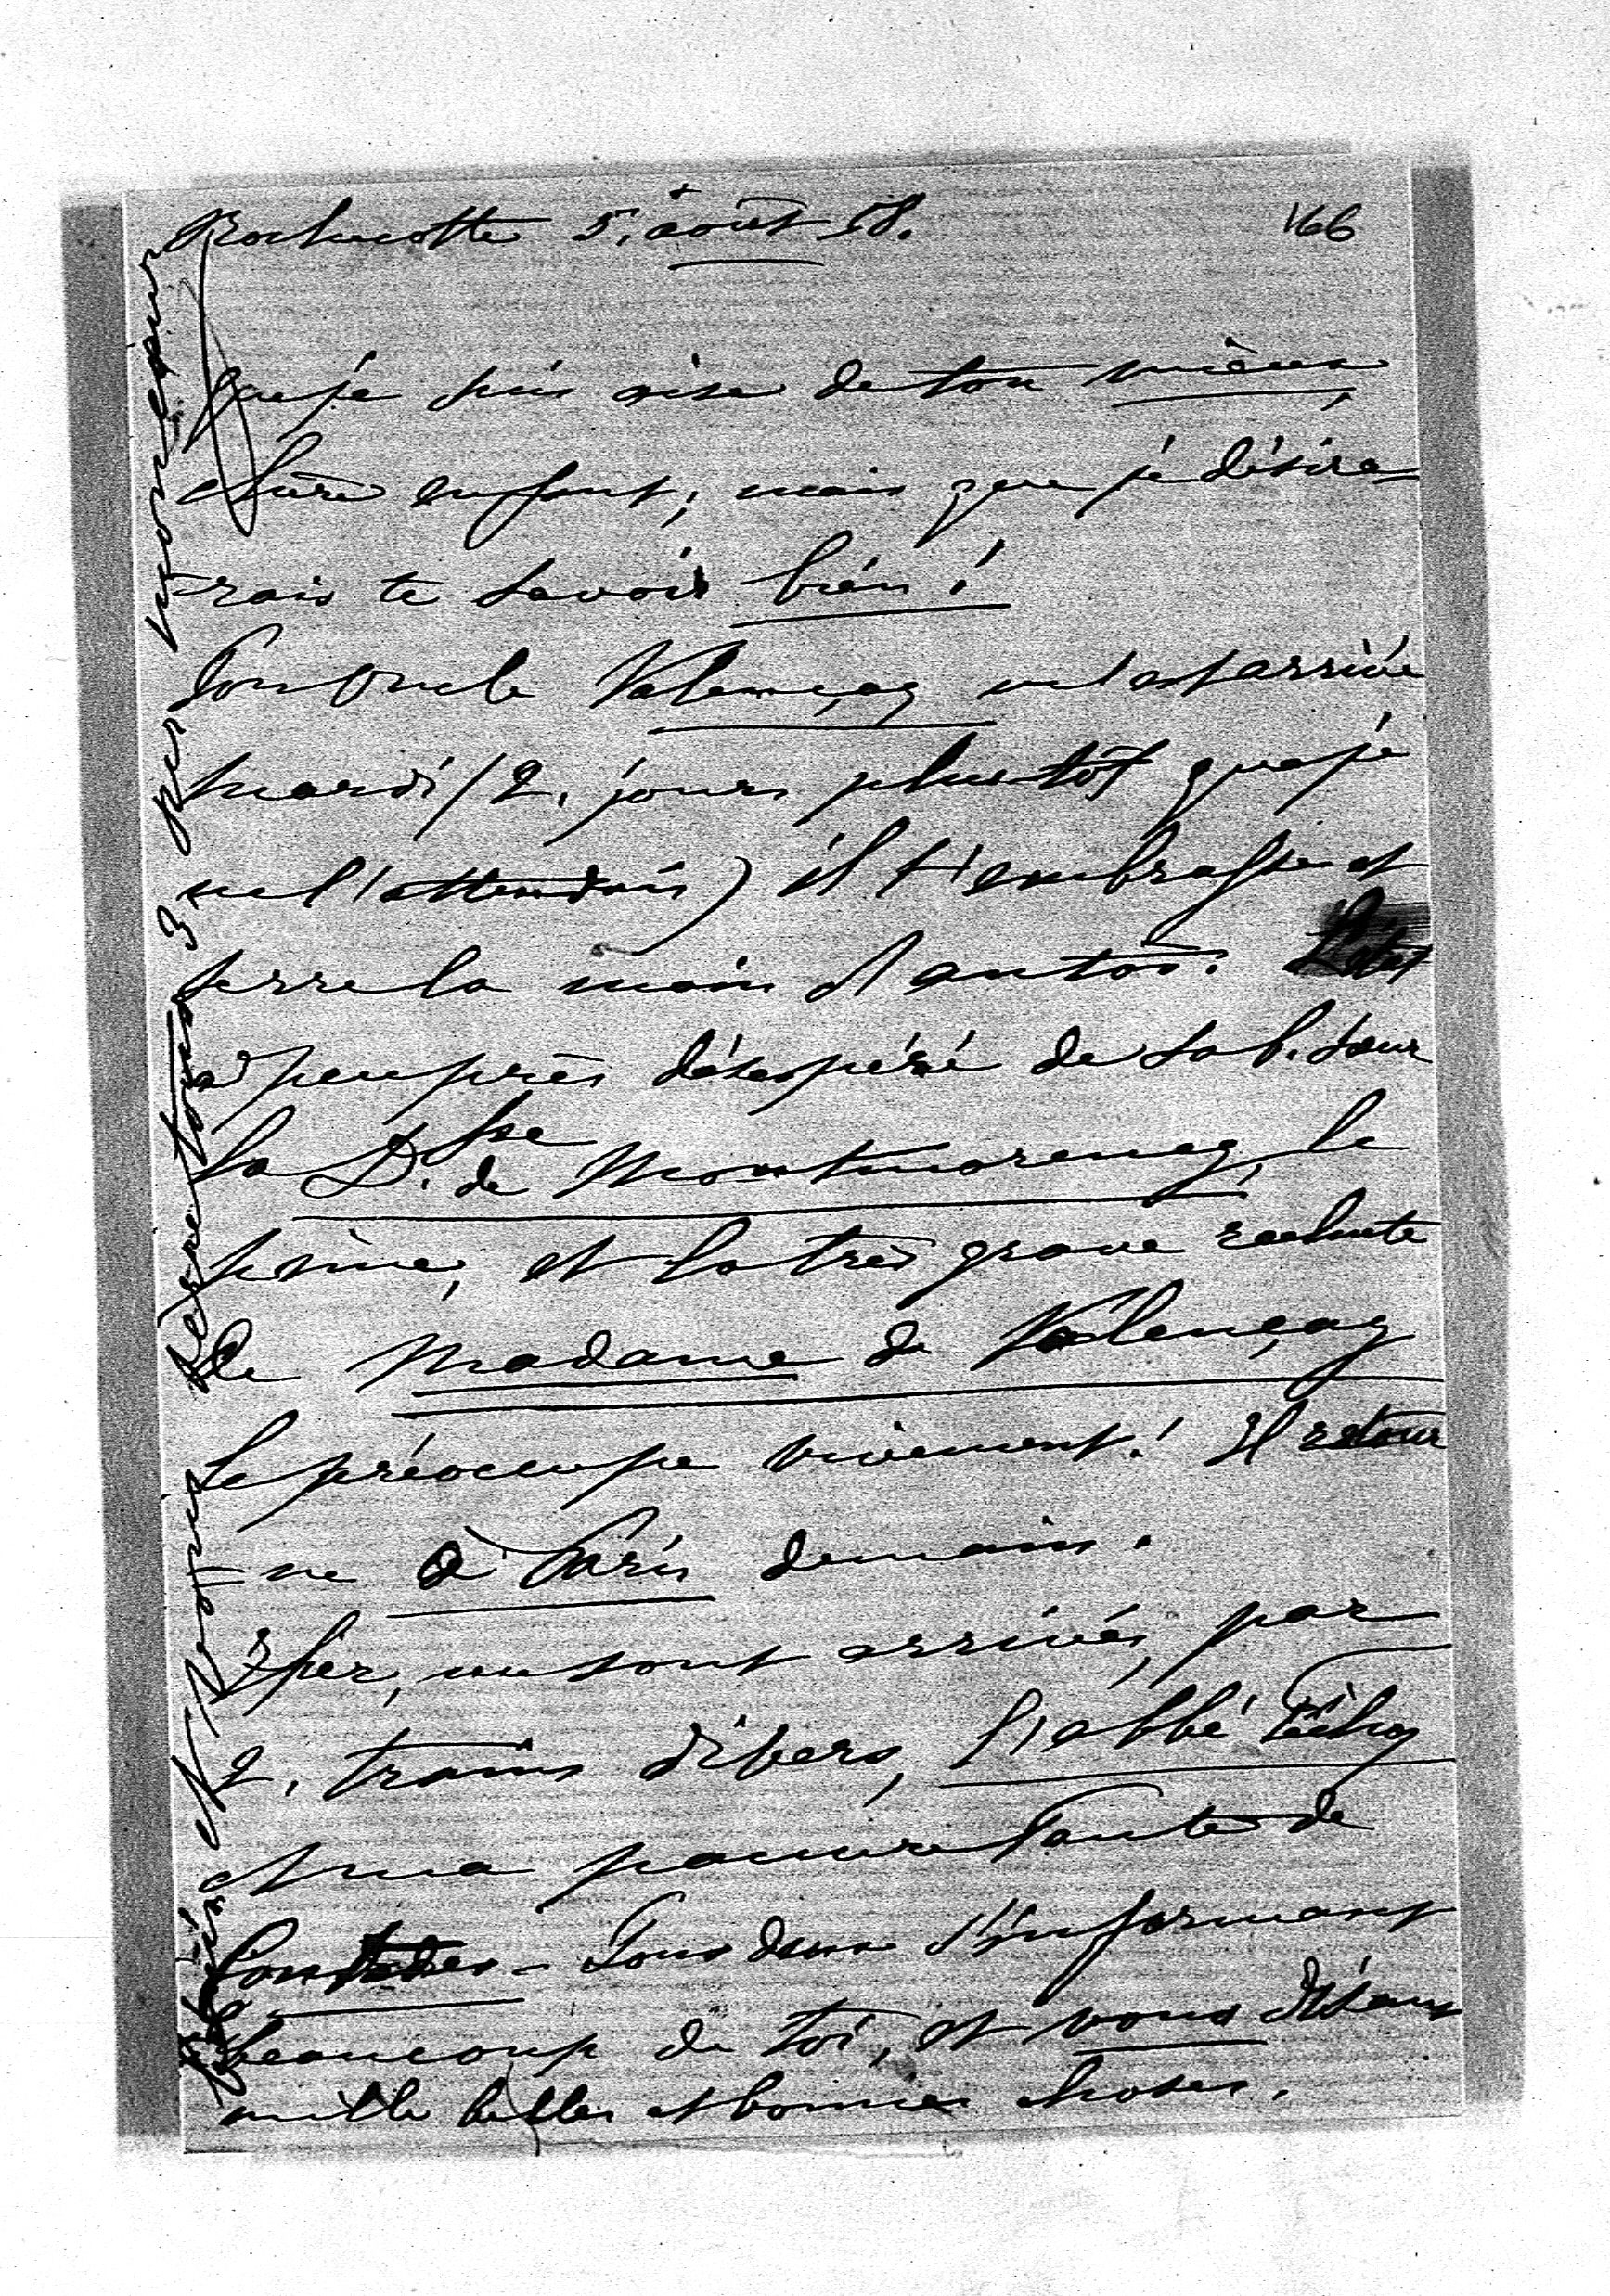 Rochecotte 5. août 58.
166
que je suis aise de ton mieux,
chère enfant; mais que je désire=
=rais te savoir bien!
Ton Oncle Valençay m'est arrivé
mardi (2. jours plus tôt que je
ne l'attendais) il t'embrasse et
serre la main d'Antoi:
à peu près désespéré de sa b. soeur
la D.sse de Montmorency, la
sienne, et la très grave rechute
de Madame de Valençay
le préoccupe vivement! Il retour
=ne à Paris demain.
Hier, me sont arrivés, par
2. trains divers, l'abbé
et ma pauvre Tante de
Tous deux s'informant
beaucoup de toi, et vous disant
mille belles et bonnes choses.